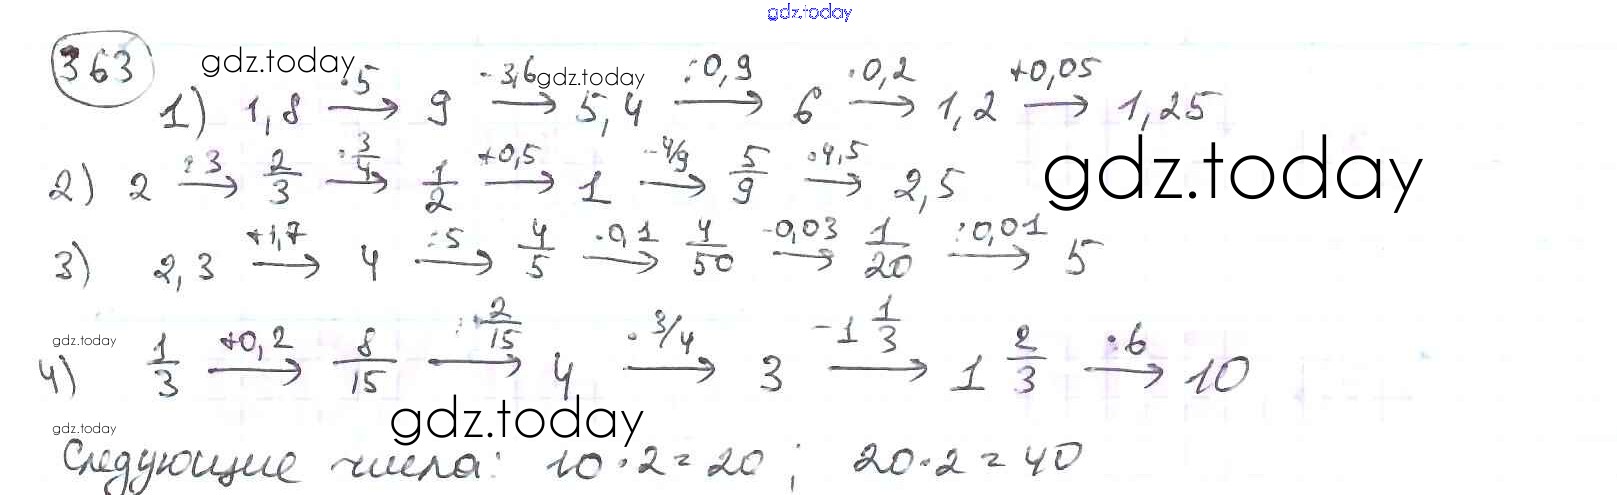 gdz.today
363 gdz.today gdz.today
1) 1,8 ·5→ 9 -3,6→ 5,4 :0,9→ 6 ·0,2→ 1,2 +0,05→ 1,25
2) 2 :3→ 2/3 ·3/4→ 1/2 +0,5→ 1 -4/9→ 5/9 ·4,5→ 2,5
gdz.today
3) 2,3 +1,7→ 4 :5→ 4/5 ·0,1→ 4/50 -0,03→ 1/20 :0,01→ 5
gdz.today
4) 1/3 +0,2→ 8/15 :2/15→ 4 ·3/4→ 3 -1 1/3→ 1 2/3 ·6→ 10
gdz.today
gdz.today
Следующие числа: 10·2=20; 20·2=40